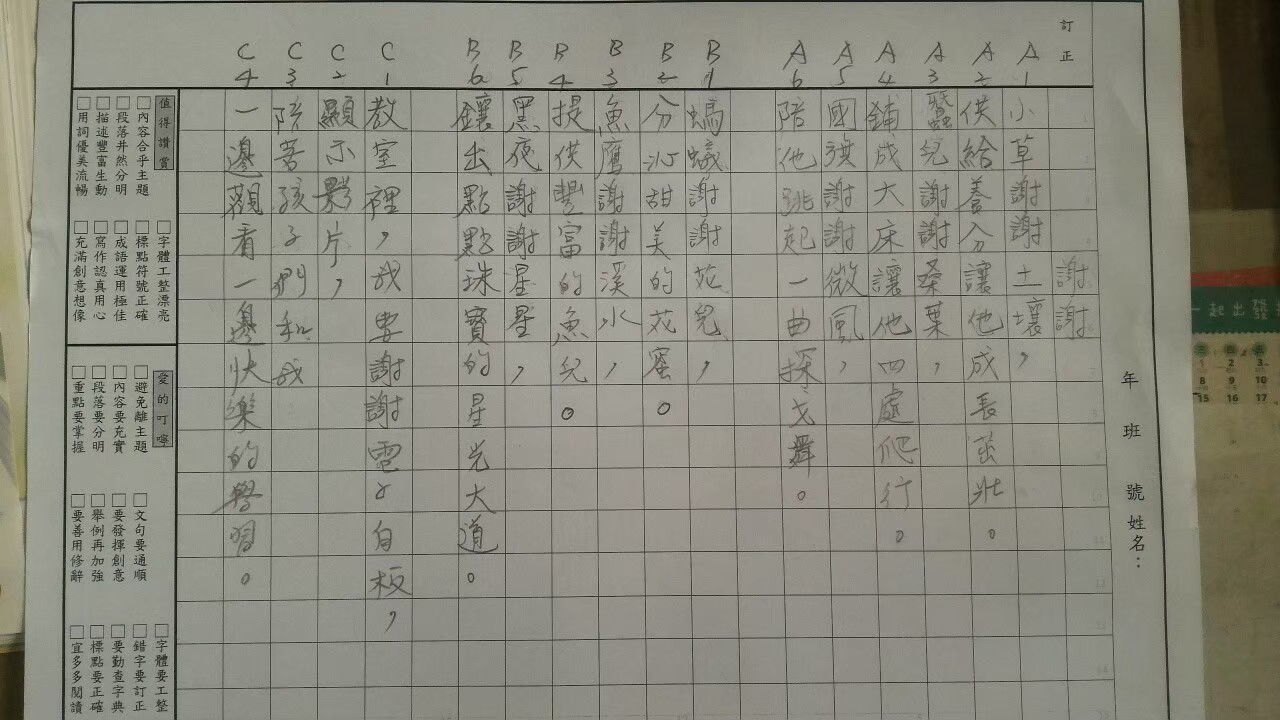 訂正
年 班 號 姓名：
謝謝
A1 小草謝謝土壤，
A2 供給養分讓他成長茁壯。
A3 蠶兒謝謝桑葉，
A4 鋪成大床讓他四處爬行。
A5 國旗謝謝微風，
A6 陪他跳起一曲探戈舞。
B1 螞蟻謝謝花兒，
B2 分泌甜美的花蜜。
B3 魚鷹謝謝溪水，
B4 提供豐富的魚兒。
B5 黑夜謝謝星星，
B6 鑲出點點珠寶的星光大道。
C1 教室裡，我要謝謝電子白板，
C2 顯示影片，
C3 陪著孩子們和我
C4 一邊觀看一邊快樂的學習。
值得讚賞
□字體工整漂亮
□標點符號正確
□成語運用極佳
□寫作認真用心
□充滿創意想像
□內容合乎主題
□段落井然分明
□描述豐富生動
□用詞優美流暢
愛的叮嚀
□字體要工整
□錯字要訂正
□要勤查字典
□標點要正確
□宜多多閱讀
□文句要通順
□要發揮創意
□舉例再加強
□要善用修辭
□避免離主題
□內容要充實
□段落要分明
□重點要掌握
一起出發
1 2 3
8 9 10
15 16 17